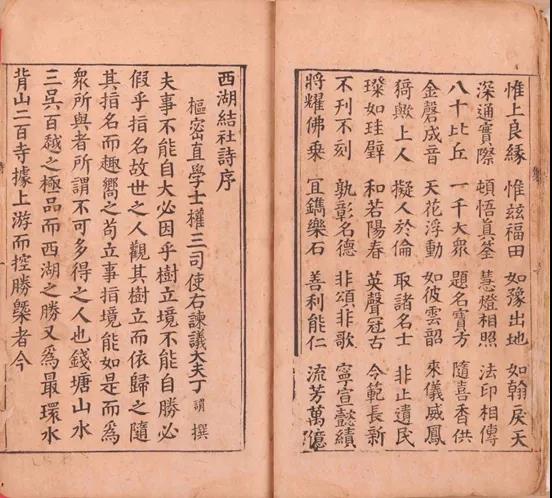 惟上良緣 惟茲福田 如豫出地 如翰戾天
深通實際 頓悟真筌 慧燈相照 法印相傳
八十比丘 一千大衆 題名寶方 隨喜香供
金磬成音 天花浮動 如彼雲韶 來儀威鳳
猗歟上人 擬人於倫 取諸名士 非止遺民
璨如珪璧 和若陽春 英聲冠古 令範長新
不刊不刻 孰彰名德 非頌非歌 寧宣懿績
將耀佛乗 冝鐫樂石 善利能仁 流芳萬億
西湖結社詩序
樞密直學士權三司使右諫議大夫丁謂撰
夫事不能自大必因乎樹立境不能自勝必
假乎指名故世之人觀其樹立而依歸之隨
其指名而趣嚮之苟立事指境能如是而爲
衆所與者所謂不可多得之人也錢塘山水
三吳百越之極品而西湖之勝又爲最環水
背山二百寺據上游而控勝槩者今